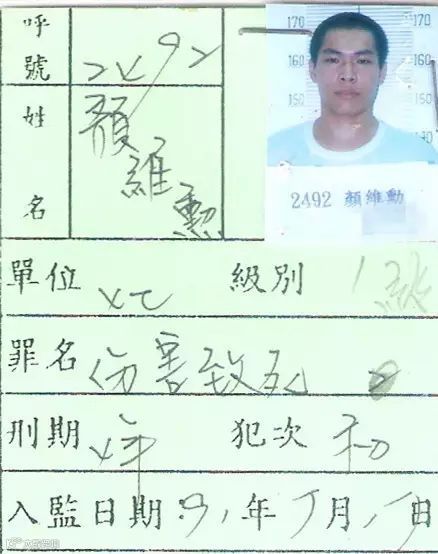 呼號 2492
姓名 顏維勳
170 170
160 160
150 150
140
2492 顏維勳
單位 級別 1級
罪名 伤害致死
刑期 年 犯次 初
入監日期:91年 月 日